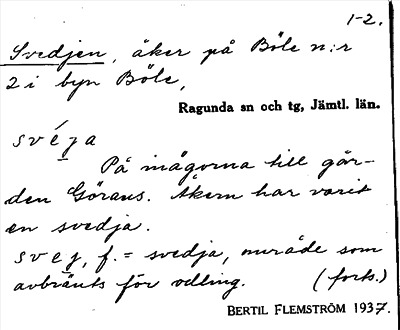 1-2.
Svedjen, åker på Böle n:r
2 i byn Böle,
Ragunda sn och tg, Jämtl. län.
svéʒa
På inägorna till går-
den Görans. Åkern har varit
en svedja.
sveʒ, f. = svedja, område som
avbränts för odling. (forts.)
BERTIL FLEMSTRÖM 1937.